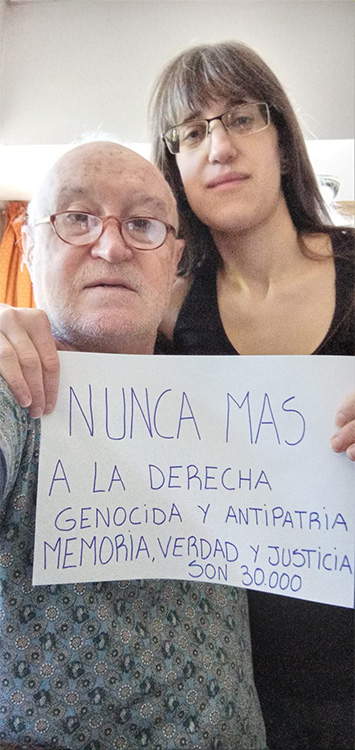 NUNCA MAS
A LA DERECHA
GENOCIDA Y ANTIPATRIA
MEMORIA, VERDAD Y JUSTICIA
SON 30.000